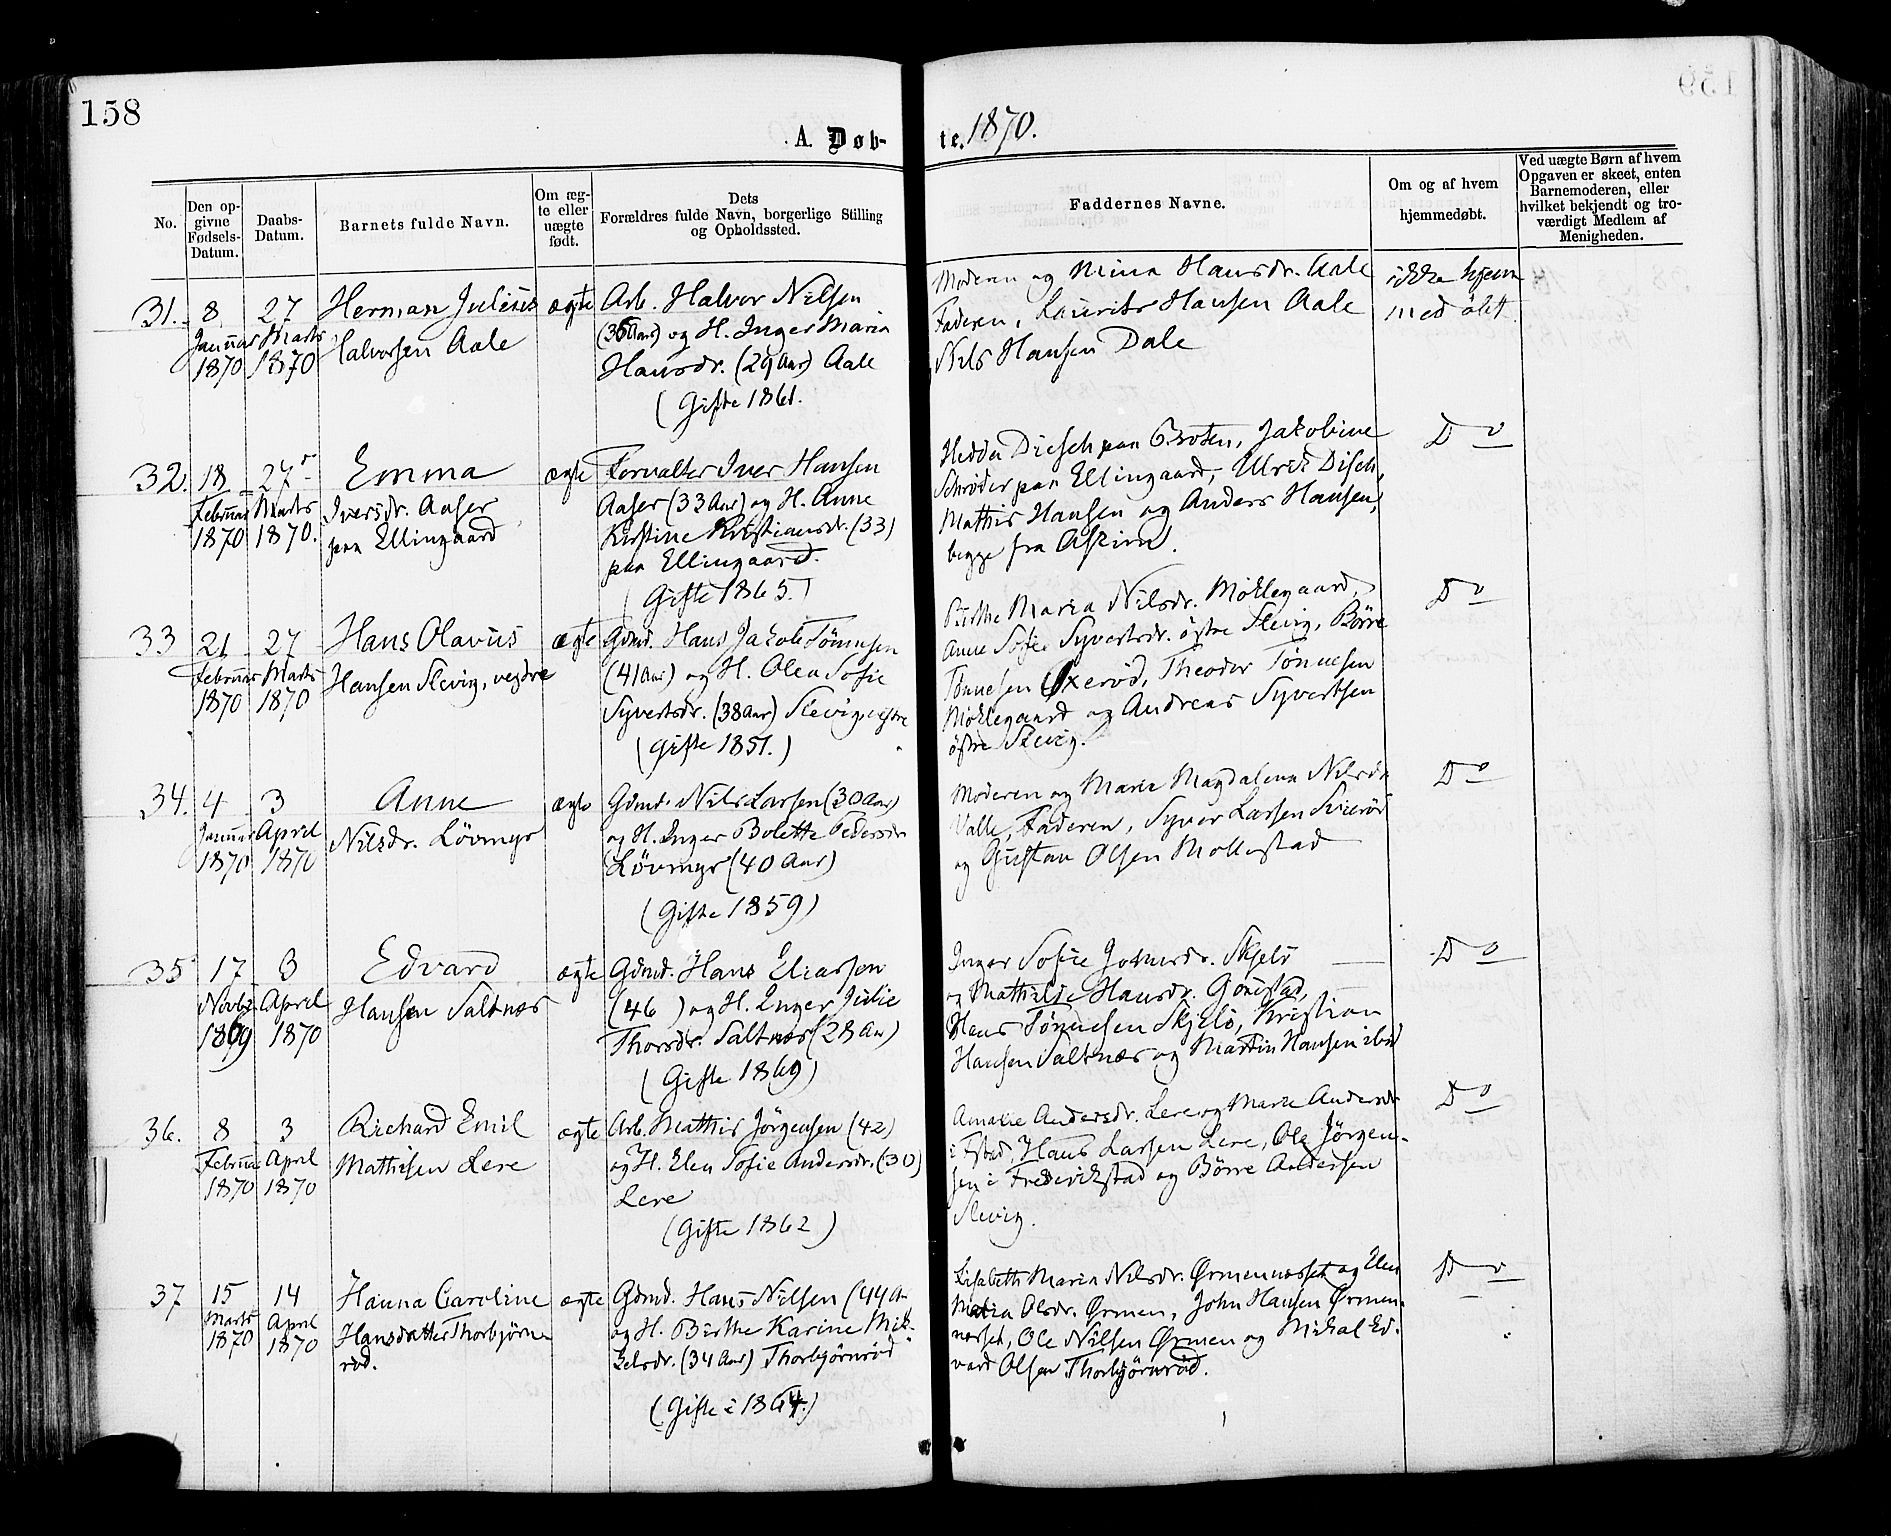 158
A. Døb-
te. 1870.
No.
Den op-
givne
Fødsels-
Datum.
Daabs-
Datum.
Barnets fulde Navn.
Om æg-
te eller
uægte
født.
Dets
Forældres fulde Navn, borgerlige Stilling
og Opholdssted.
Faddernes Navne.
Om og af hvem
hjemmedøbt.
Ved uægte Børn af hvem
Opgaven er skeet, enten
Barnemoderen, eller
hvilket bekjendt og tro-
værdigt Medlem af
Menigheden.
31.
8
Januar
1870
27
Marts
1870
Herman Julius
Halvorsen Aale
ægte
Arb. Halvor Nilsen
(35 Aar) og H. Inger Maria
Hansdr. (29 Aar) Aale
(Gifte 1861.
Moderen og Mina Hansdr. Aale
Faderen, Laurits Hansen Aale
Nils Hansen Dale
ikke hjem
med ølet.
32.
18
Februar
1870
27
Marts
1870.
Emma
Iversdr. Aaser
paa Ellingaard
ægte
Forvalter Iver Hansen
Aaser (33 Aar) og H. Anne
Kirstine Kristiansdr. (33)
paa Ellingaard.
(Gifte 1865.)
Hedda Diesch paa Broten, Jakobine
Schrøder paa Ellingaard, Ulrik Disch,
Mathis Hansen og Anders Hansen,
begge fra Askim.
Do
33
21
Februar
1870
27
Marts
1870
Hans Olavus
Hansen Slevig, vestre
ægte
Gdmd. Hans Jakob Tønnesen
(41 Aar) og H. Olea Sofie
Syvertsdr. (38 Aar) Slevig, vestre
(Gifte 1851.)
Birthe Maria Nilsdr. Møklegaard,
Anne Sofie Syvertsdr. østre Slevig, Børre
Tønnesen Øxerød, Theodor Tønnesen
Møklegaard og Andreas Syvertsen
østre Slevig.
Do
34.
4
Januar
1870
3
April
1870
Anne
Nilsdr. Løvmyr
ægte
Gdmd. Nils Larsen (30 Aar)
og H. Inger Bolette Pedersdr.
Løvmyr (40 Aar)
(Gifte 1859)
Moderen og Marie Magdalena Nilsdr.
Valle, Faderen, Syver Larsen
og Gustav Olsen Mollestad
Do
35
17
Novbr.
1869
3
April
1870
Edvard
Hansen Saltnæs
ægte
Gdmd. Hans Eliassen
(46 ) og H. Inger Julie
Thorsdr. Saltnæs (28 Aar)
(Gifte 1869)
Inger Sofie Skjelø
og Mathilde Hansdr.
Hans Tønnesen Skjelø, Kristian
Hansen Saltnæs og Martin Hansen ibid
Do
36.
8
Februar
1870
3
April
1870
Richard Emil
Mathisen Lere
ægte
Arb. Mathis Jørgensen (42)
og H. Elen Sofie Andersdr. (30)
Lere
(Gifte 1862)
Amalie Andersdr. Lere og Marie Andersdr.
i Fstad, Hans Larsen Lere, Ole Jørgen-
sen i Fredrikstad og Børre Andersen
Slevig.
Do
37
15
Marts
1870
14
April
1870
Hanna Caroline
Hansdatter Thorbjørns
rød.
ægte
Gdmd. Hans Nilsen (44 Aar
og H. Birthe Karine Mik-
kelsdr. (34 Aar) Thorbjørnrød
(Gifte i 1864.)
Lisabeth Maria Nilsdr. Ørmennæsset og Elen
Maria Olsdr. Ørmen, John Hansen Ørmen-
næsset, Ole Nilsen Ørmen og Mikal Ed-
vard Olsen Thorbjørnrød.
Do